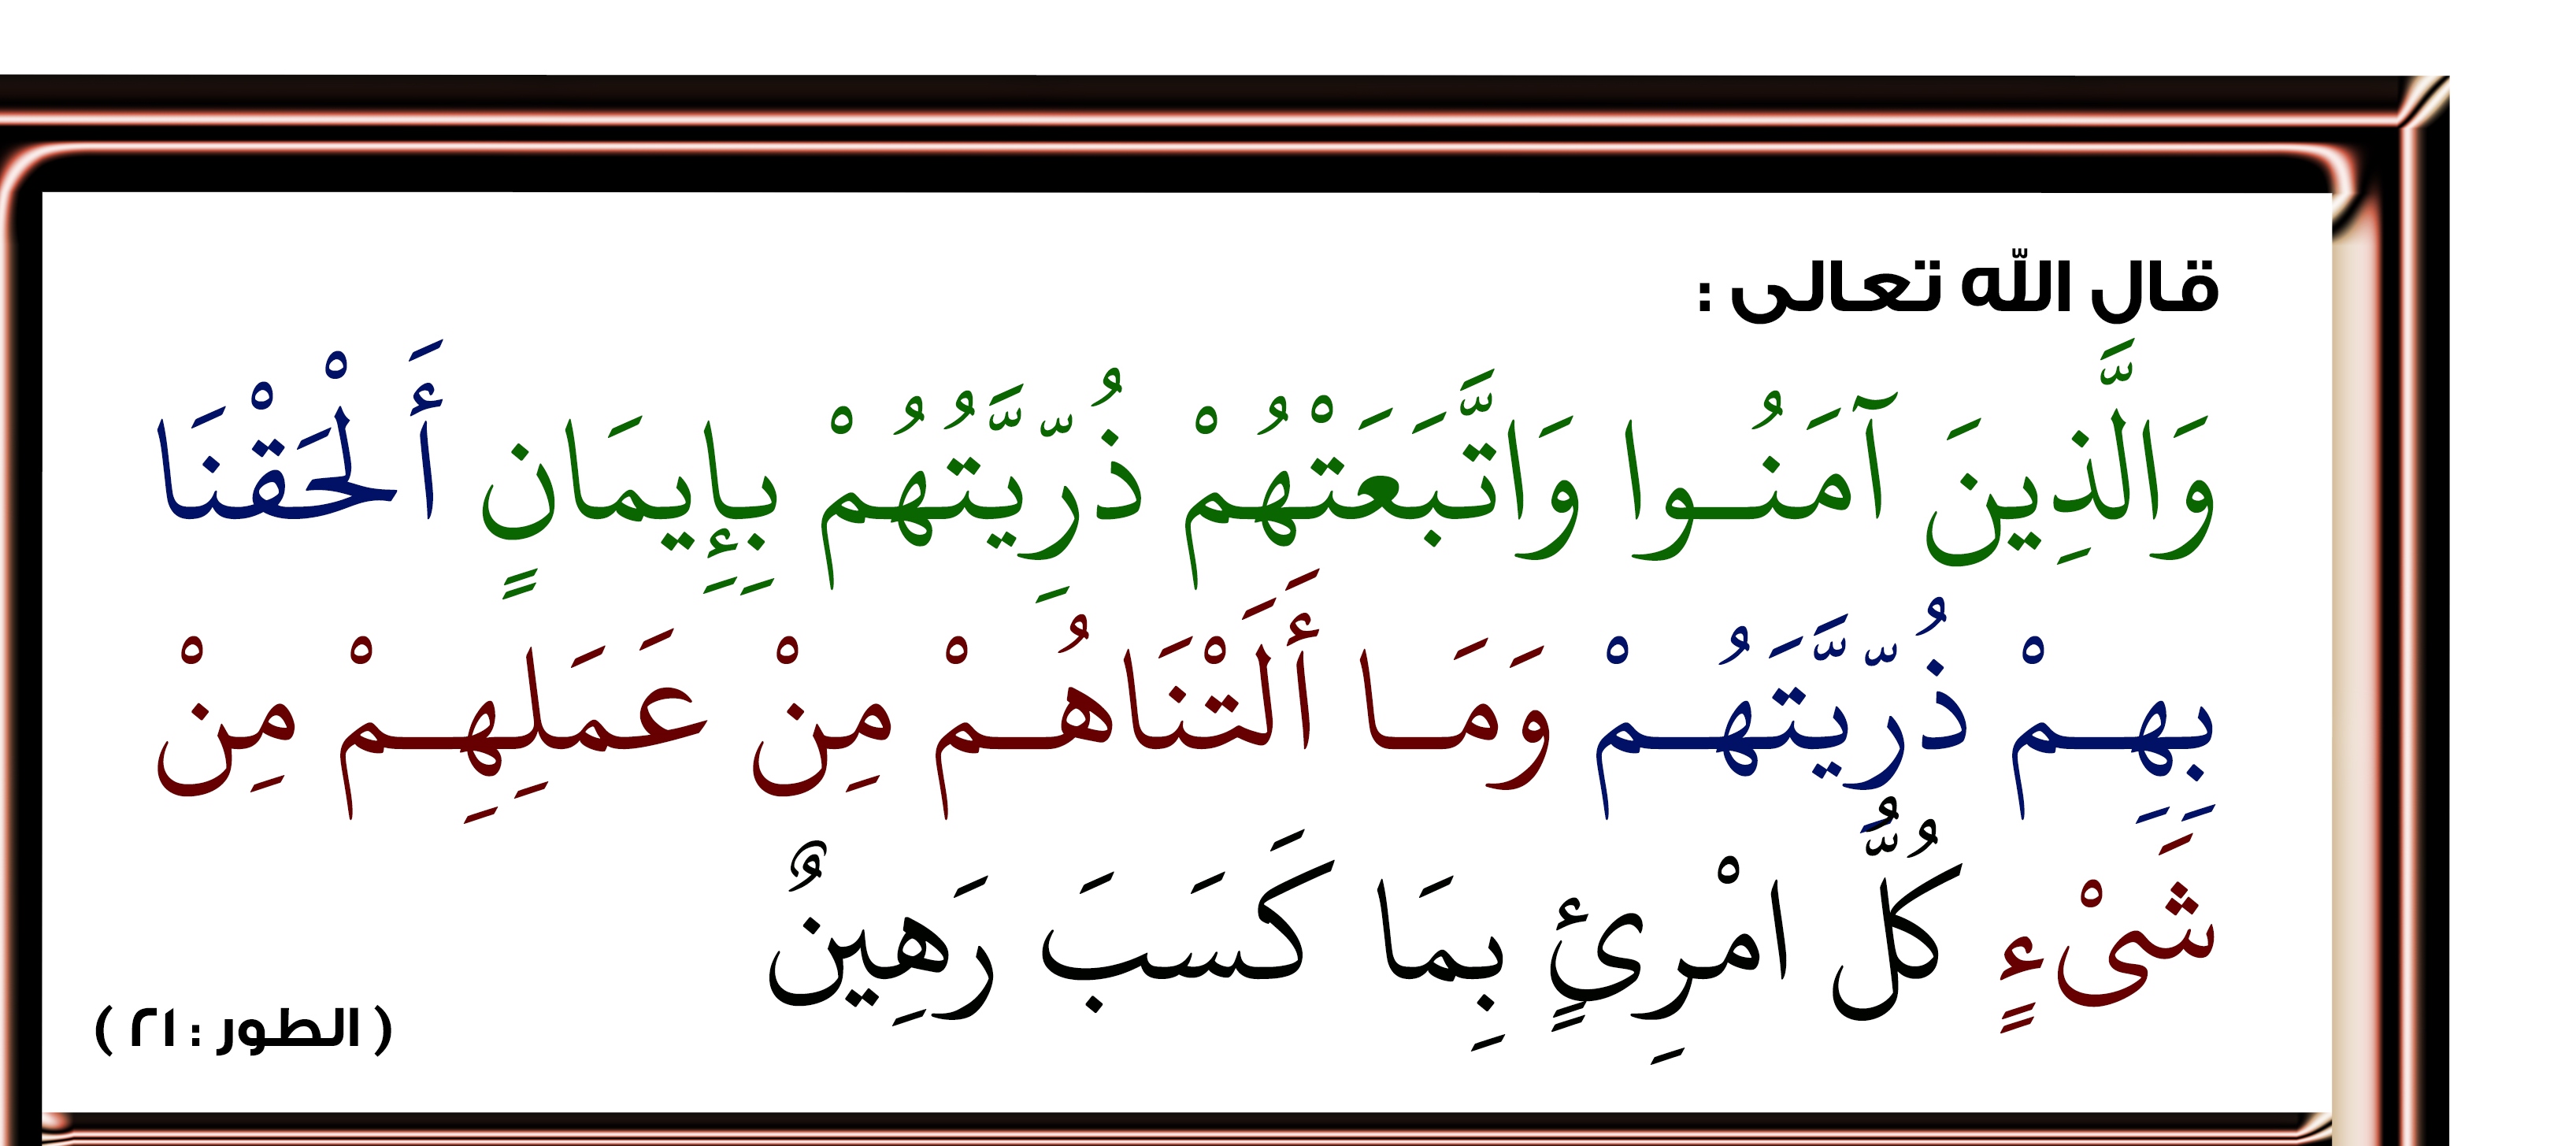 قال الله تعالى :
وَالَّذِينَ آمَنُوا وَاتَّبَعَتْهُمْ ذُرِّيَّتُهُمْ بِإِيمَانٍ أَلْحَقْنَا
بِهِمْ ذُرِّيَّتَهُمْ وَمَا أَلَتْنَاهُمْ مِنْ عَمَلِهِمْ مِنْ
شَىْءٍ كُلُّ امْرِئٍ بِمَا كَسَبَ رَهِينٌ
( الطور : ٢١ )